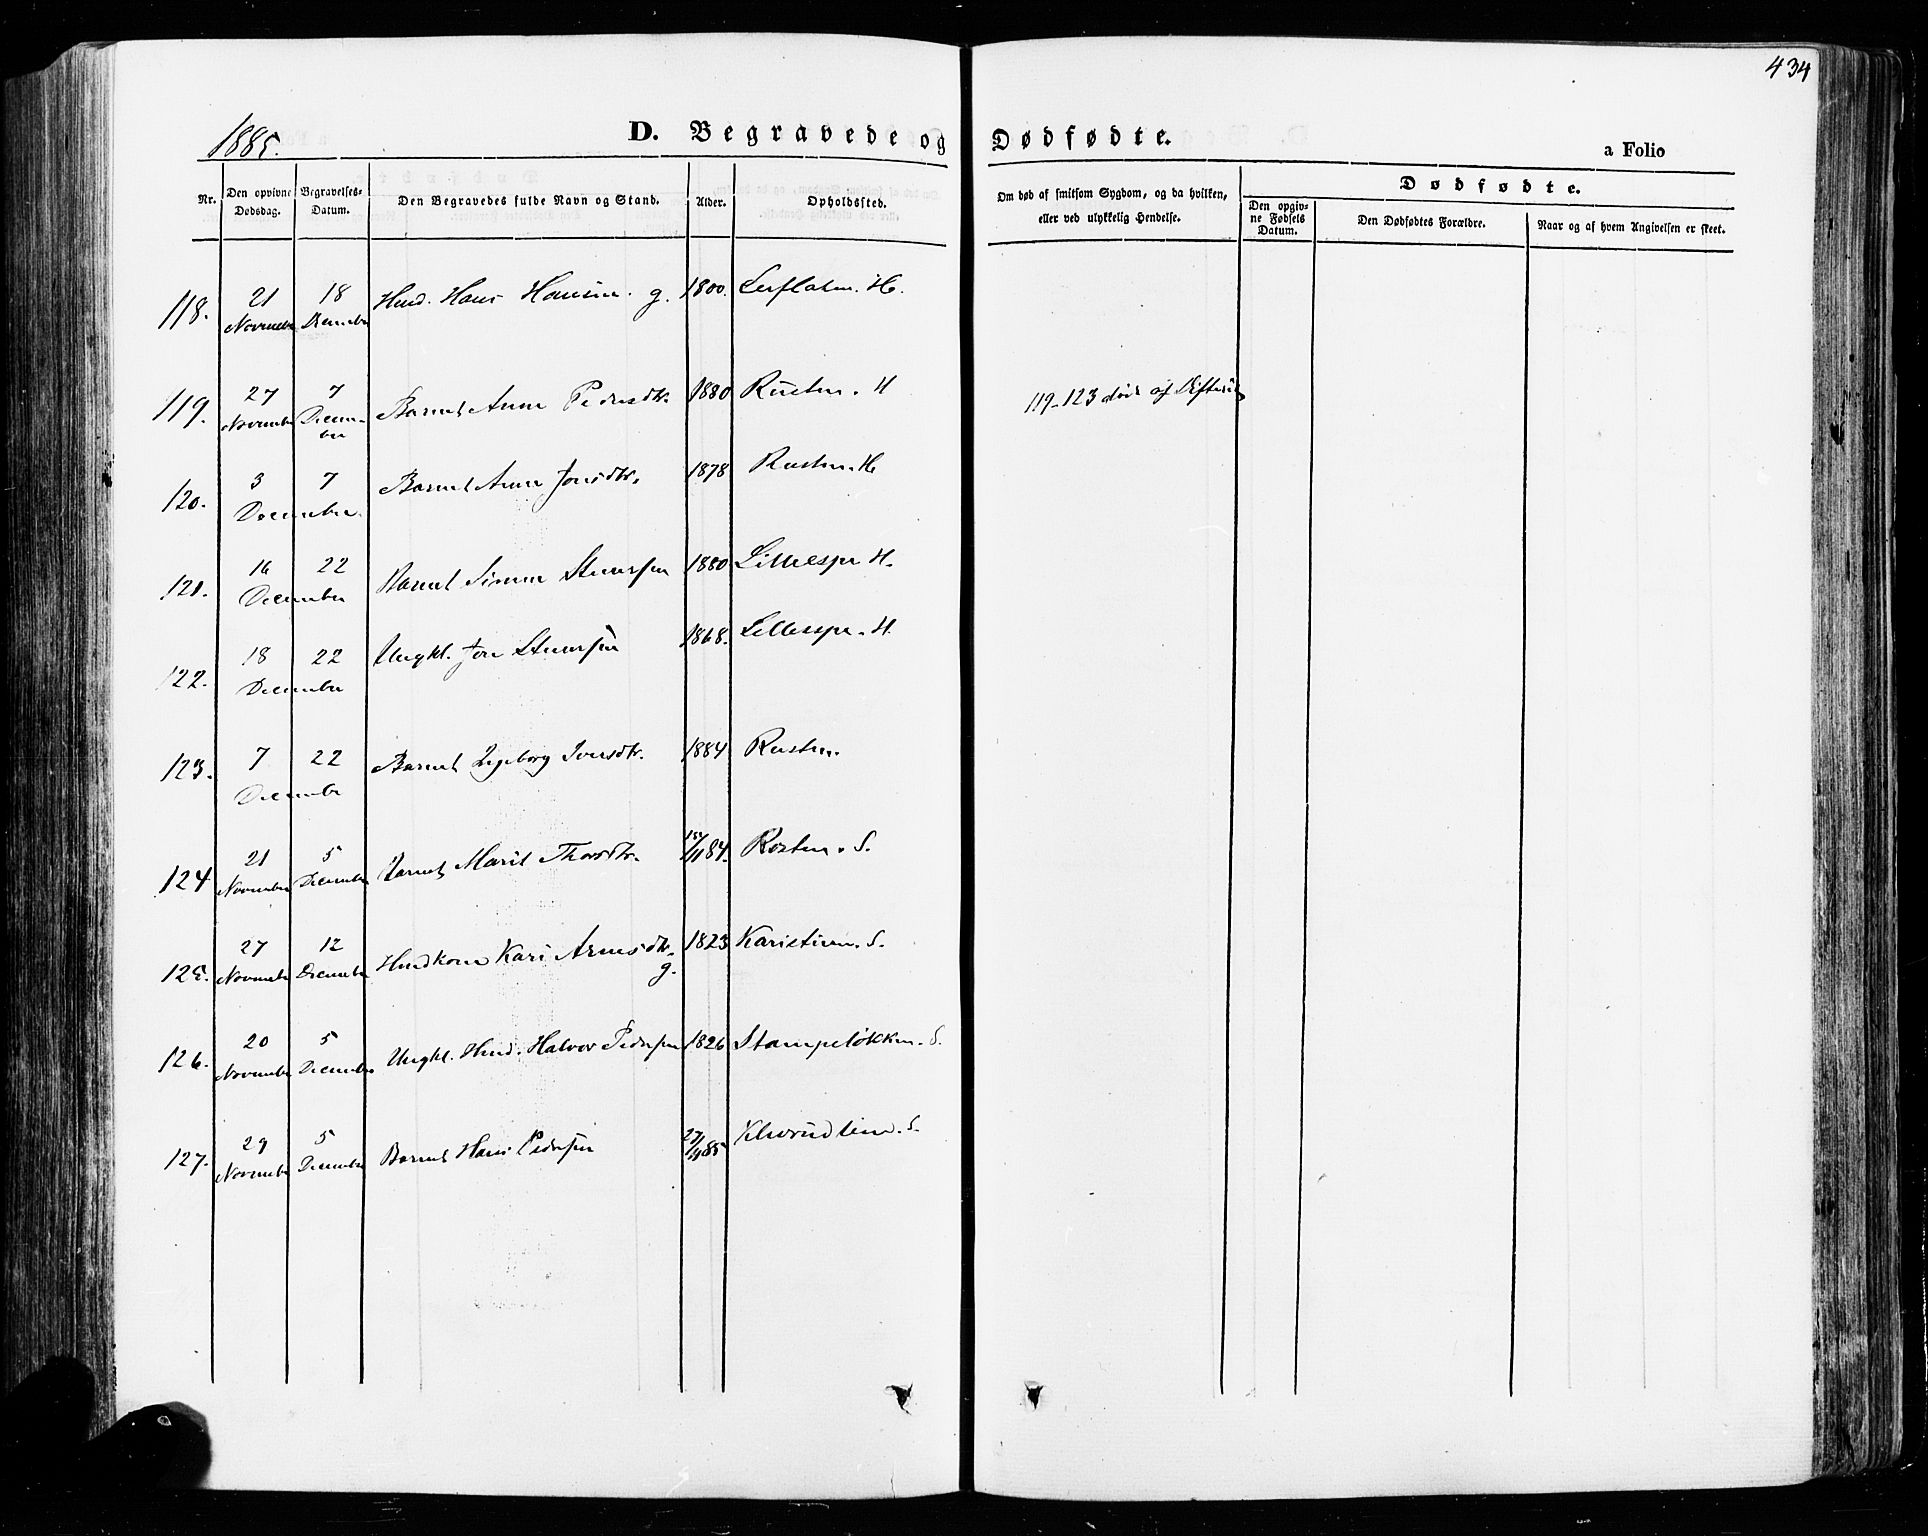 434
1885.
D. Begravede og Dødfødte.
a Folio
Nr. Den opgivne Dødsdag. Begravelses-Datum. Den Begravedes fulde Navn og Stand. Alder. Opholdssted. Om død af smitsom Sygdom, og da hvilken, eller ved ulykkelig Hendelse. Dødfødte.
Den opgivne Fødsels Datum. Den Dødfødtes Forældre. Naar og af hvem Angivelsen er skeet.
118. 21 November 18 December Hmd. Hans Hansen. g. 1800. H.
119. 27 November 7 December Barnet Anne Pedersdtr. 1880 Rusten. H 119-123 døde af Difterit
120. 3 7 December Barnet Anne Jonsdtr. 1878 Rusten. H
121. 16 22 December Barnet Simen Stensen 1880 H.
122. 18 22 December Ungkl. Jon Stensen 1868. H.
123. 7 22 December Barnet Ingeborg Iversdtr. 1884 Rusten.
124 21 November 5 December Barnet Marit Thorsdtr. 84. Rosten. S.
125. 27 November 12 December Huskone Kari Arnesdtr. g. 1823 S.
126. 20 November 5 December Ungkl. Hmd. Halvor Pedersen 1826 Stampeløkken. S.
127. 29 November 5 December Barnet Hans Pedersen 27/11 85 S.